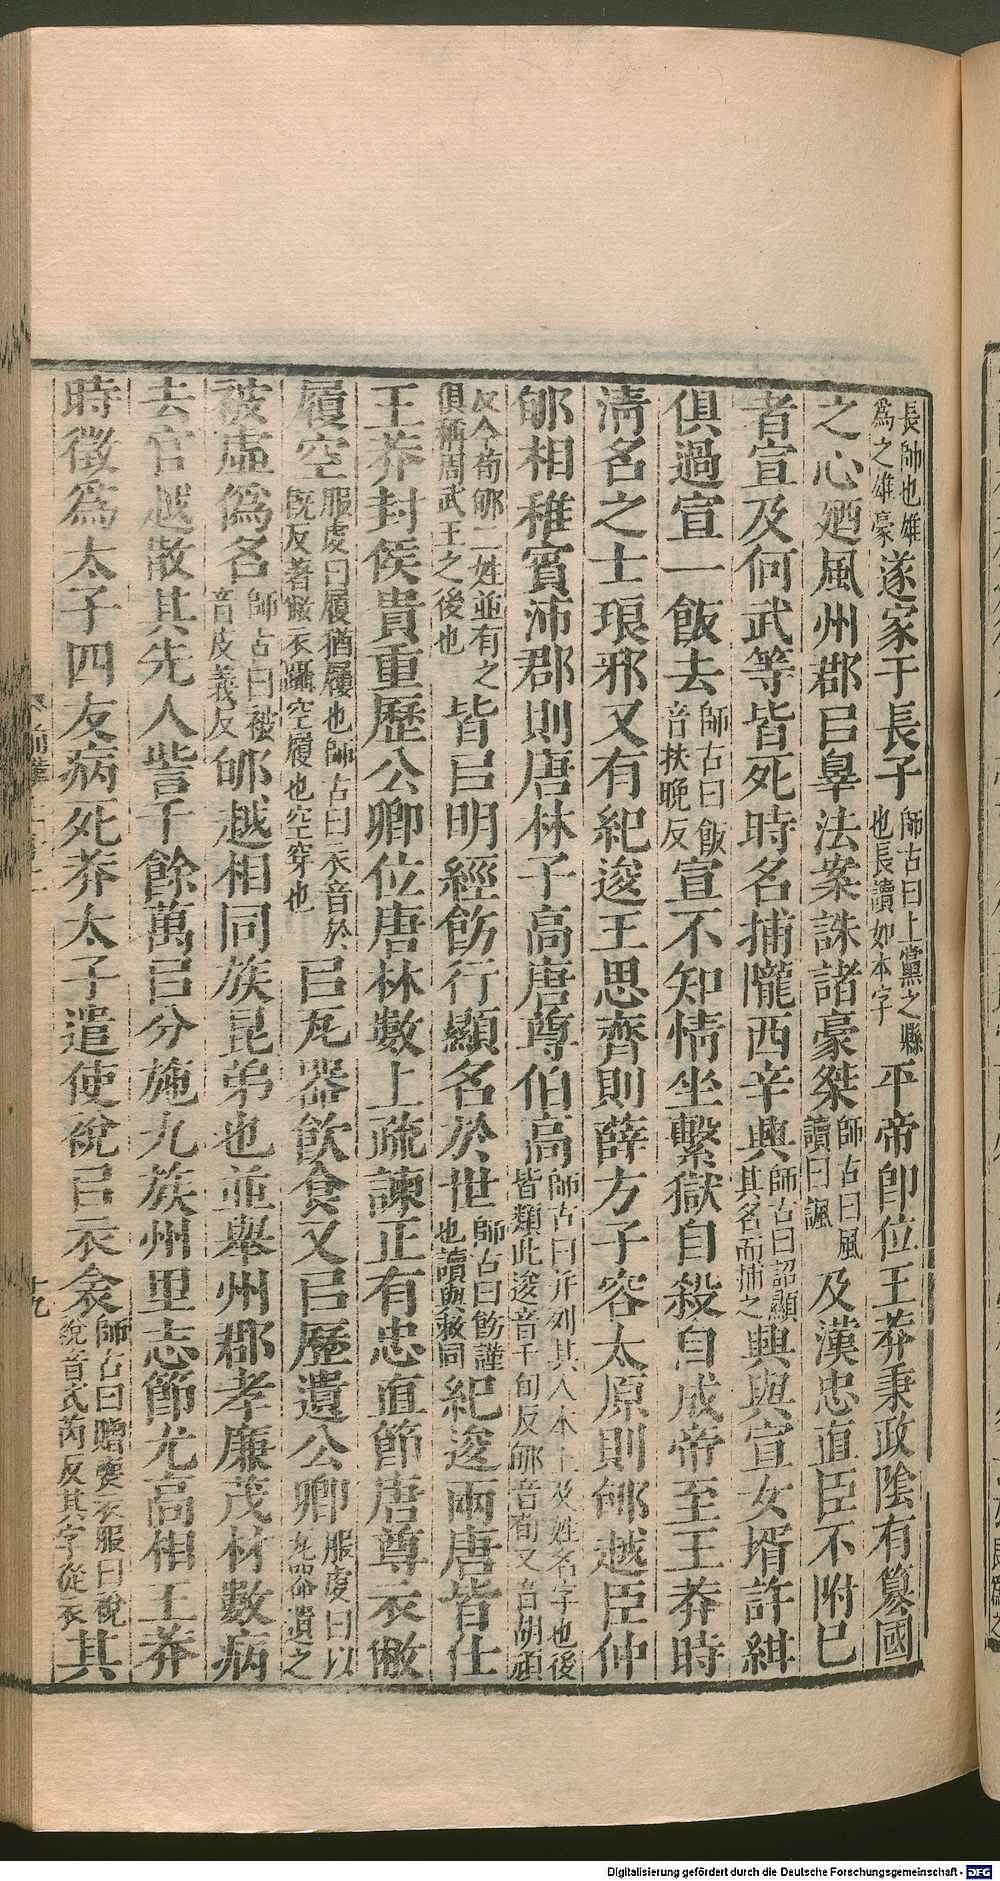 長帥也雄
爲之雄豪
遂家于長子
師古曰上黨之縣
也長讀如本字
平帝即位王莽秉政陰有篡國
之心迺風州郡㠯辠法案誅諸豪桀
師古曰風
讀曰諷
及漢忠直臣不附已
者宣及何武等皆死時名捕隴西辛興
師古曰詔顯
其名而捕之
興與宣女壻許紺
俱過宣一飯去
師古曰飯
音扶晚反
宣不知情坐繫獄自殺自成帝至王莽時
清名之士琅邪又有紀逡王思齊則薛方子容太原則郇越臣仲
郇相稚賓沛郡則唐林子高唐尊伯高
師古曰并列其人本土及姓名字也後
皆類此逡音千旬反郇音荀又音胡頑
反今荀郇二姓並有之
俱稱周武王之後也
皆㠯明經飭行顯名於世
師古曰飭謹
也讀與敕同
紀逡兩唐皆仕
王莽封侯貴重歷公卿位唐林數上疏諫正有忠直節唐尊衣敝
履空
服虔曰履猶屨也師古曰衣音於
旣反著敝衣躡空履也空穿也
㠯瓦器飲食又㠯歷遺公卿
服虔曰以
瓦器遺之
被虛僞名
師古曰被
音皮義反
郇越相同族昆弟也並舉州郡孝廉茂材數病
去官越散其先人訾千餘萬㠯分施九族州里志節尤高相王莽
時徵爲太子四友病死莽太子遣使祱㠯衣衾
師古曰贈喪衣服曰祱
祱音式芮反其字從衣
其
十九
Digitalisierung gefördert durch die Deutsche Forschungsgemeinschaft - DFG